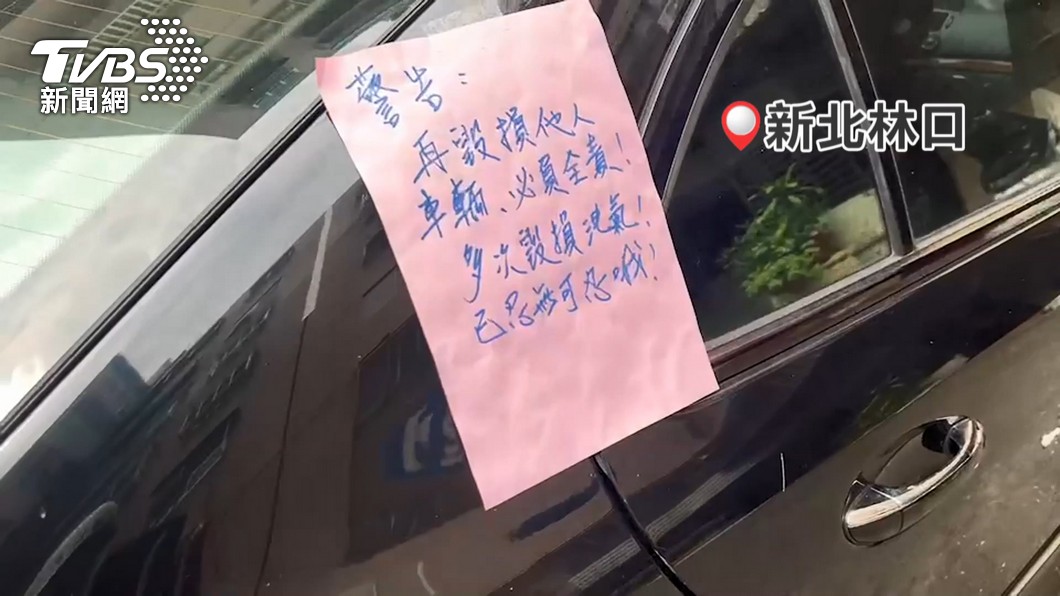 TVBS
新聞網
新北林口
警告：
再毀損他人
車輛、必負全責！
多次毀損洩氣！
已忍無可忍哦！